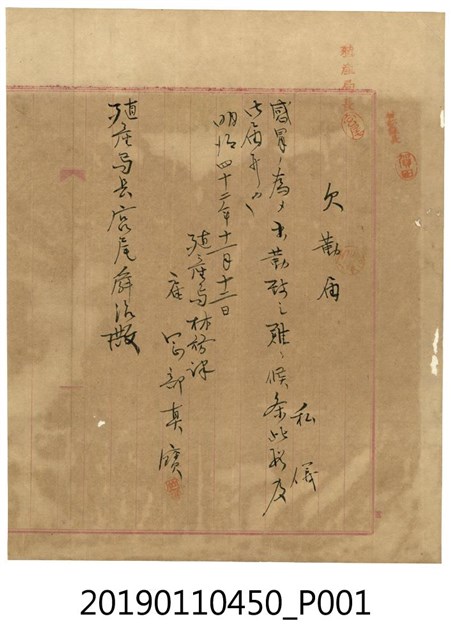 欠勤届
私儀
感冒ノ為メ出勤致シ難ク候条此段及
御届候也
明治四十二年十一月十二日
殖産局林務課
雇 岡部真
殖産局長宮尾舜治殿
殖産局長
20190110450_P001